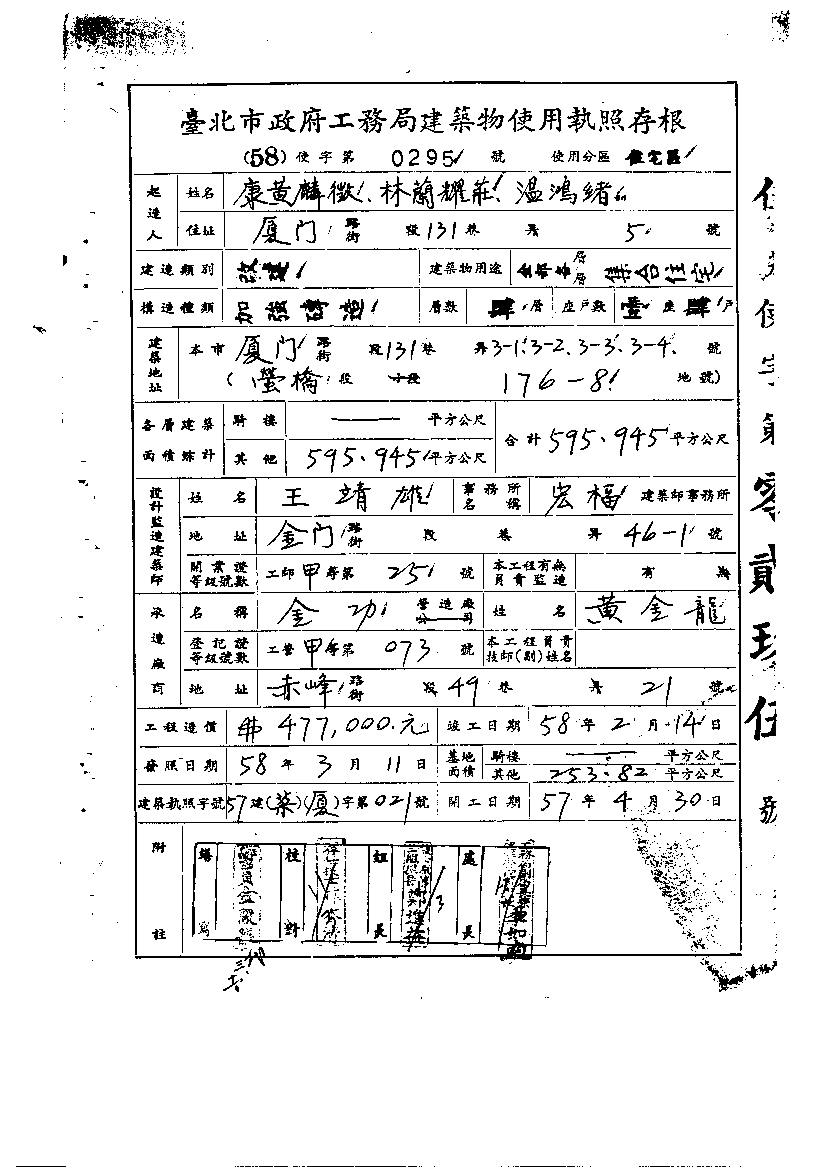 臺北市政府工務局建築物使用執照存根
(58) 使字第 0295 號 使用分區 住宅區
起造人 姓名 康黃麟徵、林蘭耀莊、溫鴻緒
住址 厦门 路街 段 131 巷 弄 5 號
建造類別 改建 建築物用途 層層 集合住宅
構造種類 加強磚造 層數 肆層 座戶數 壹座 肆戶
建築地址 本市 厦门 路街 段 131 巷 弄 3-1、3-2、3-3、3-4、 號
(螢橋段 小段 176-8 地號)
各層建築面積綜計 騎樓 —— 平方公尺 合計 595.945 平方公尺
其他 595.945 平方公尺
設計監造建築師 姓名 王靖雄 事務所名稱 宏福 建築師事務所
地址 金门 路街 段 巷 弄 46-1 號
開業證等級號數 工師甲等第 251 號 本工程有無負責監造 有 無
承造廠商 名稱 金功 營造廠公司 姓名 黃金龍
登記證等級號數 工營甲等第 073 號 本工程負責技師(副)姓名
地址 赤峰 路街 段 49 巷 弄 21 號
工程造價 477,000.元 竣工日期 58 年 2 月 14 日
發照日期 58 年 3 月 11 日 基地面積 騎樓 —— 平方公尺
其他 253.82 平方公尺
建築執照字號 57 建(築)(厦)字第 021 號 開工日期 57 年 4 月 30 日
附註
繕寫 校對 組長 處長
使字第零貳玖伍號